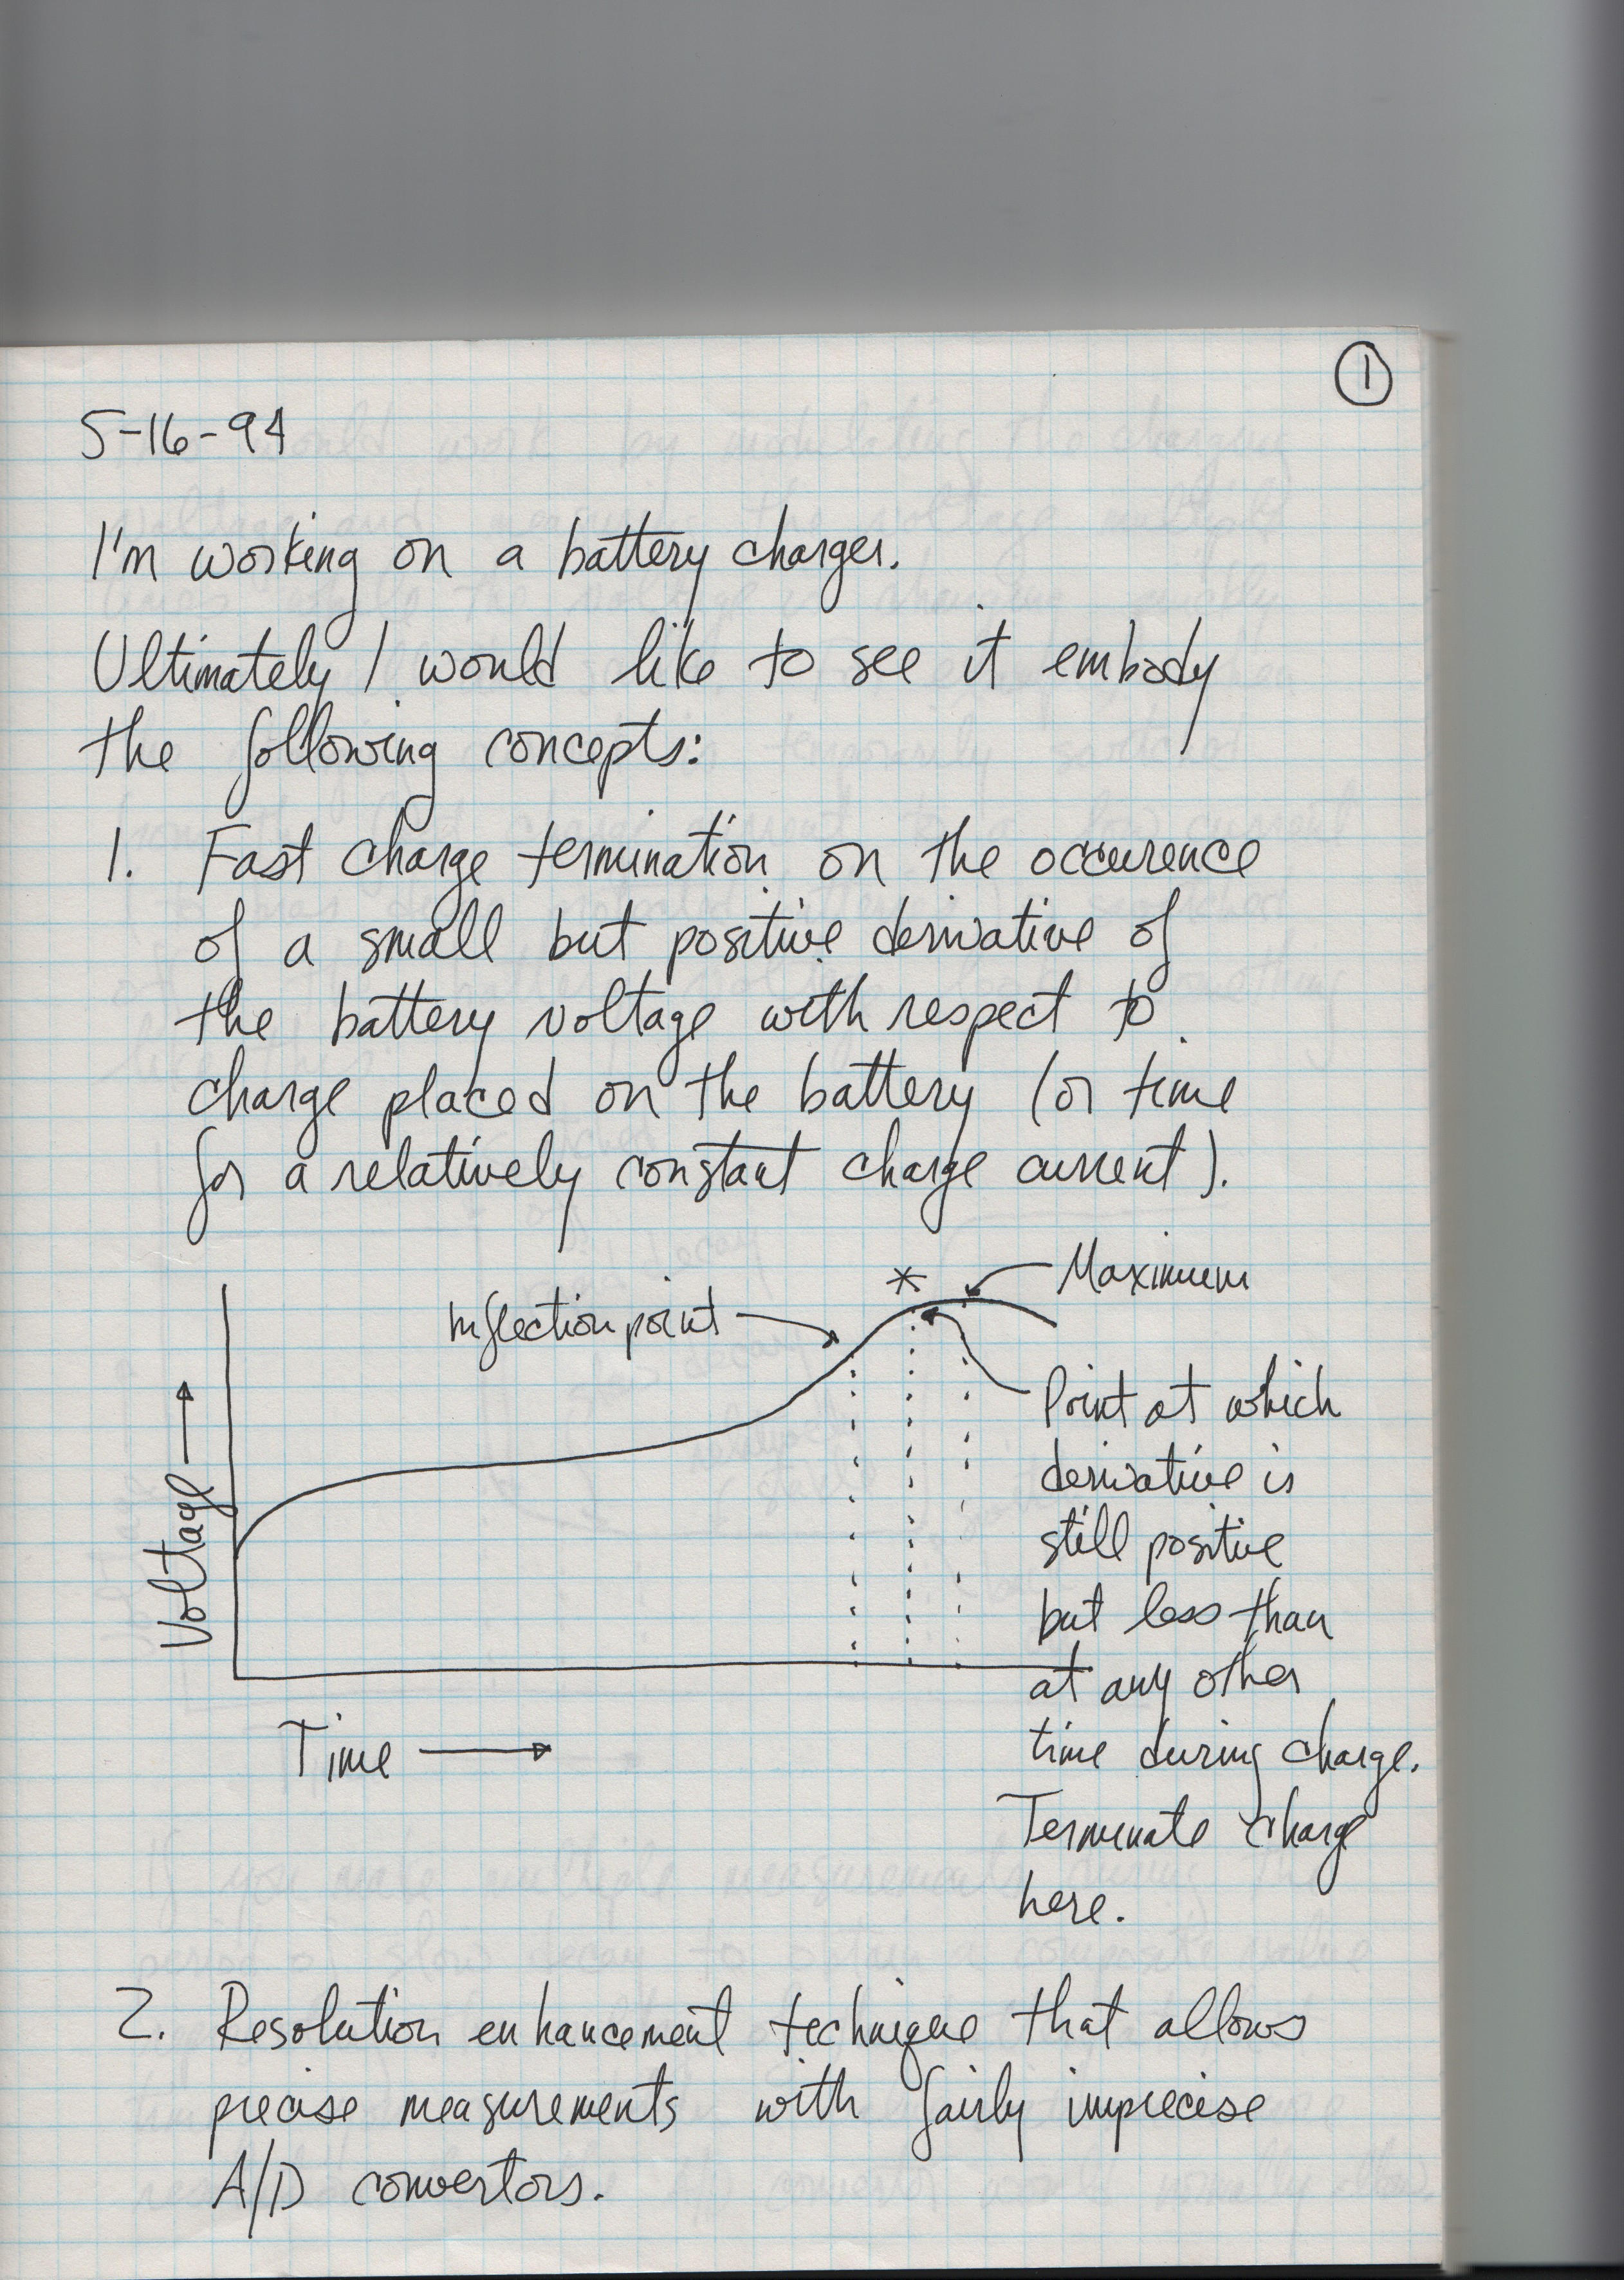 ①
5-16-94
I'm working on a battery charger.
Ultimately I would like to see it embody
the following concepts:
1. Fast charge termination on the occurence
of a small but positive derivative of
the battery voltage with respect to
charge placed on the battery (or time
for a relatively constant charge current).
*
Maximum
Inflection point
Voltage →
Point at which
derivative is
still positive
but less than
at any other
time during charge.
Terminate charge
here.
Time →
2. Resolution enhancement technique that allows
precise measurements with fairly imprecise
A/D convertors.